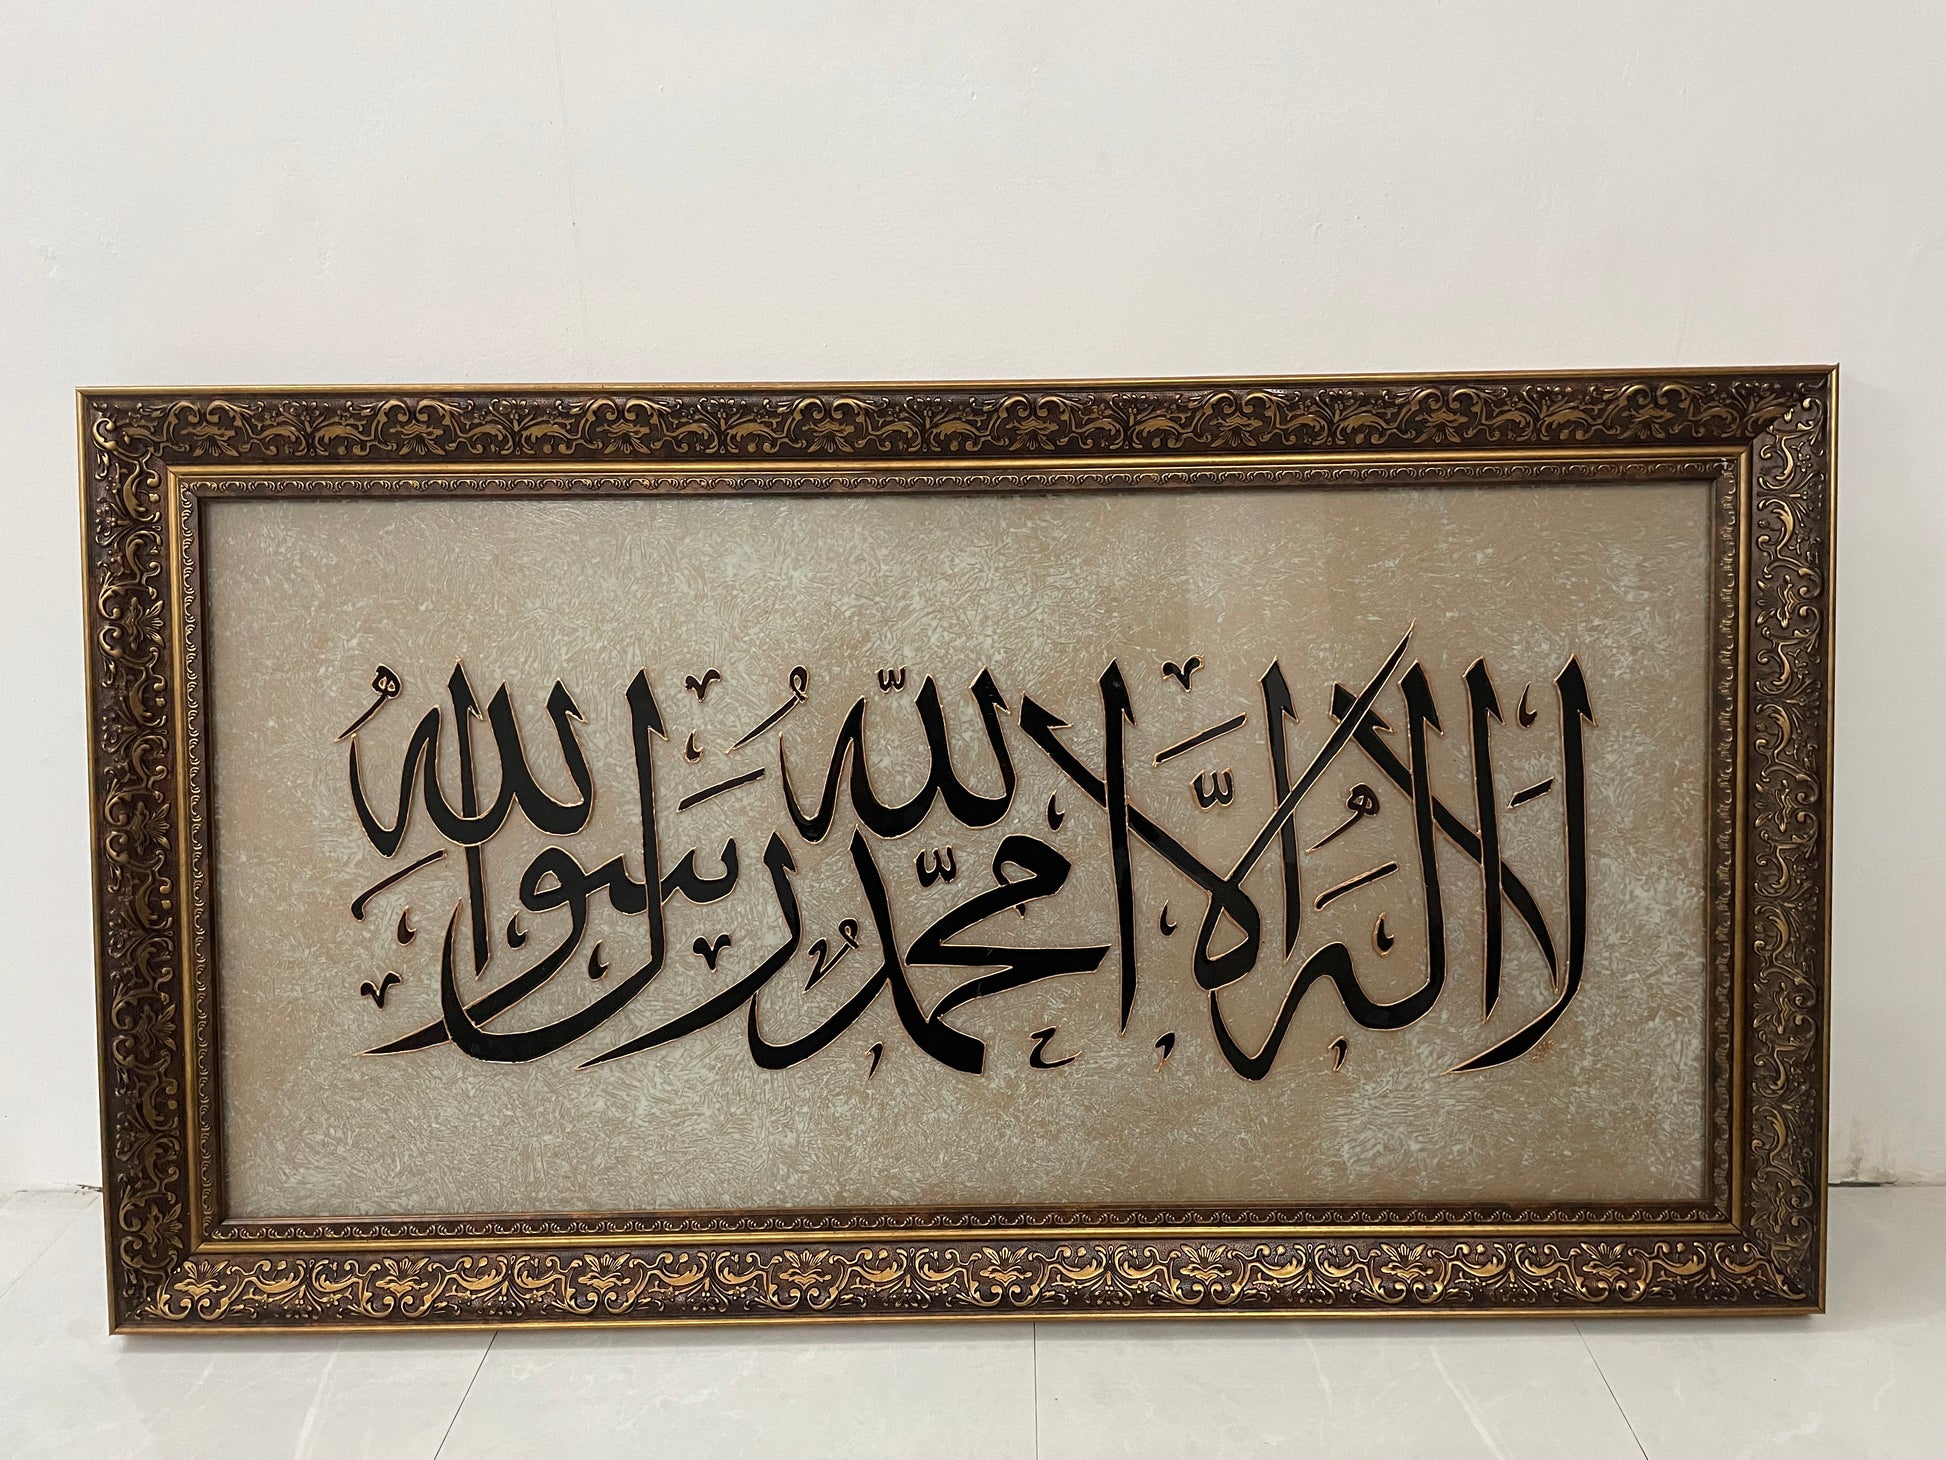 لَا إِلَٰهَ إِلَّا اللّٰهُ مُحَمَّدٌ رَسُولُ اللهِ